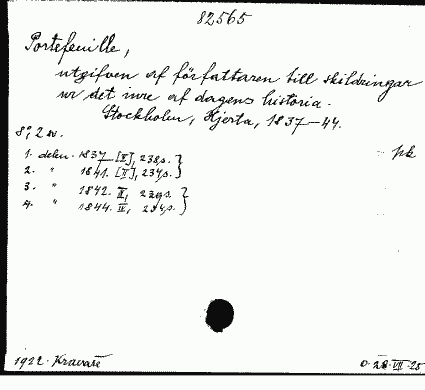 82565
Portefeuille,
utgifven af författaren till skildringar
ur det inre af dagens historia.
Stockholm, Hjerta, 1837–44.
8°, 2 w.
pk
1. delen. 1837 [I], 238 s.
2. " 1841. [II], 234 s.
3. " 1842. III, 229 s.
4. " 1844. IV, 234 s.
1922. Kravaře
0. 28. VII. 25